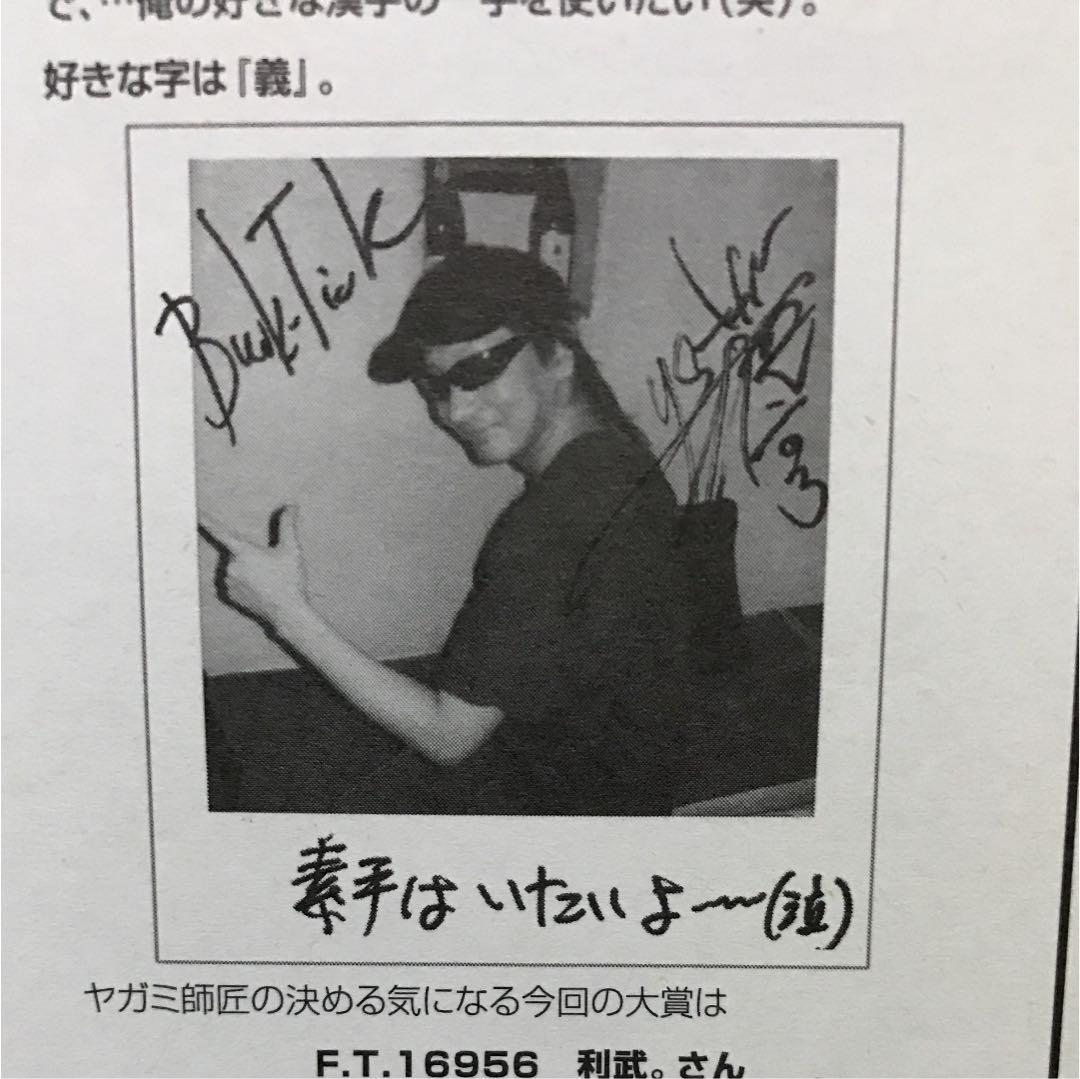 で、…俺の好きな漢字の一字を使いたい(笑)。
好きな字は『義』。
Buck-Tick
素手はいたいよ〜(泣)
ヤガミ師匠の決める気になる今回の大賞は
F.T.16956 利武。さん